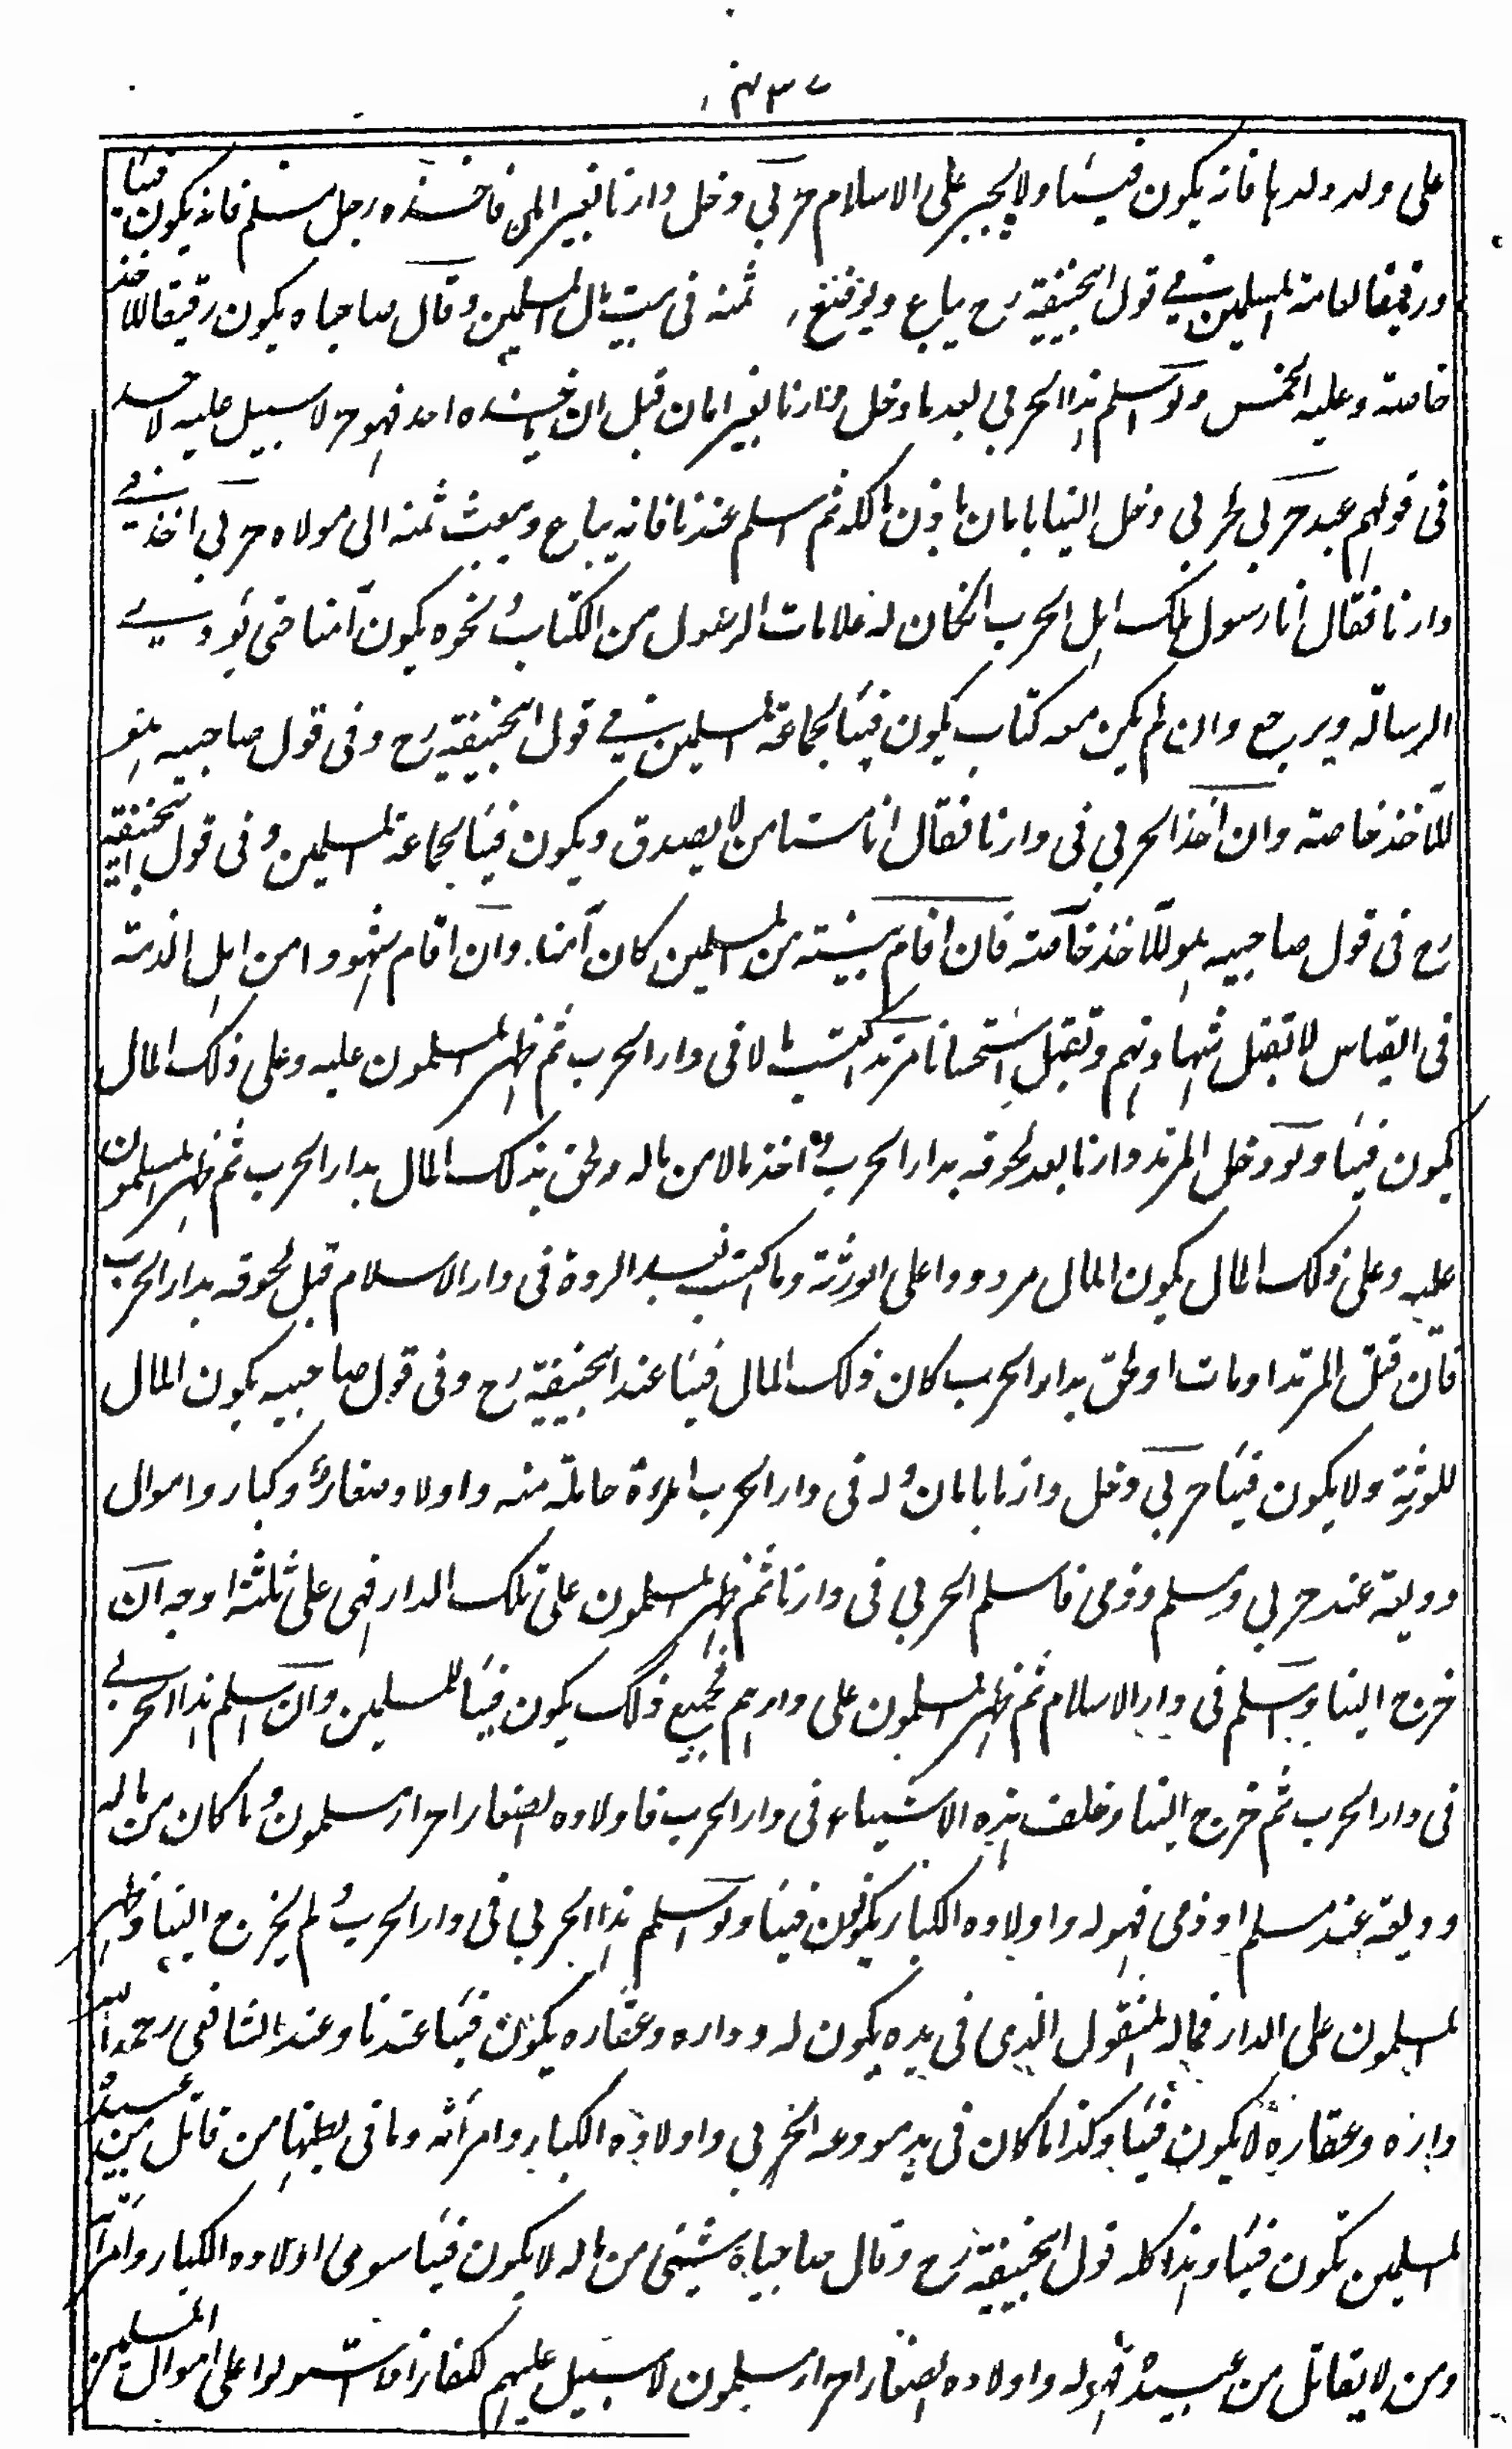 على ولد ولدها فانه يكون فيئا ولا يجبر على الاسلام حربي دخل دارنا بغير امان فاخذه رجل مسلم فانه يكون فيئا
ورقيقا لعامة المسلمين في قول ابيحنيفة رح يباع ويوضع ثمنه فى بيت مال المسلمين وقال صاحباه يكون رقيقا للآخذ
خاصة وعليه الخمس ولو اسلم هذا الحربي بعد ما دخل دارنا بغير امان قبل ان ياخذه احد فهو حر لا سبيل عليه لاحد
فى قولهم عبد حربي لحربي دخل الينا بامان باذن مالكه ثم اسلم عندنا فانه يباع ويبعث ثمنه الى مولاه حربي اخذ في
دارنا فقال انا رسول ملك اهل الحرب انكان له علامات الرسول من الكتاب ونحوه يكون آمنا حتى يؤدي
الرسالة ويرجع وان لم يكن معه كتاب يكون فيئا لجماعة المسلمين في قول ابيحنيفة رح وفى قول صاحبيه هو
للآخذ خاصة وان اخذ الحربي فى دارنا فقال انا مستامن لا يصدق ويكون فيئا لجماعة المسلمين فى قول ابيحنيفة
رح وفى قول صاحبيه هو للآخذ خاصة فان اقام بينة من المسلمين كان آمنا وان اقام شهودا من اهل الذمة
فى القياس لا تقبل شهادتهم وتقبل استحسانا مرتد اكتسب مالا فى دار الحرب ثم ظهر المسلمون عليه وعلى ذلك المال
يكون فيئا ولو دخل المرتد دارنا بعد لحوقه بدار الحرب واخذ مالا من ماله ولحق بذلك المال بدار الحرب ثم ظهر المسلمون
عليه وعلى ذلك المال يكون المال مردودا على الورثة وما اكتسب بعد الردة فى دار الاسلام قبل لحوقه بدار الحرب
فان قتل المرتد او مات او لحق بدار الحرب كان ذلك المال فيئا عند ابيحنيفة رح وفى قول صاحبيه يكون المال
للورثة ولا يكون فيئا حربي دخل دارنا بامان وله فى دار الحرب امرأة حاملة منه واولاد صغار وكبار واموال
وديعة عند حربي ومسلم وذمى فاسلم الحربي فى دارنا ثم ظهر المسلمون على تلك الدار فهى على ثلثة اوجه ان
خرج الينا واسلم فى دار الاسلام ثم ظهر المسلمون على دارهم فجميع ذلك يكون فيئا للمسلمين وان اسلم هذا الحربي
فى دار الحرب ثم خرج الينا وخلف هذه الاشياء فى دار الحرب فاولاده الصغار احرار مسلمون وما كان من ماله
وديعة عند مسلم او ذمى فهو له واولاده الكبار يكونون فيئا ولو اسلم هذا الحربي فى دار الحرب ولم يخرج الينا وظهر
المسلمون على الدار فماله المنقول الذى فى يده يكون له وداره وعقاره يكون فيئا عندنا وعند الشافعي رحمه الله
داره وعقاره لا يكون فيئا وكذا ما كان فى يد مودعه الحربي واولاده الكبار وامرأته وما فى بطنها ومن قاتل من عبيده
المسلمين تكون فيئا وهذا كله قول ابيحنيفة رح وقال صاحباه شيئ من ماله لا يكون فيئا سوى اولاده الكبار وامرأته
ومن لا يقاتل من عبيده فهو له واولاده الصغار احرار مسلمون لا سبيل عليهم كفار استولوا على اموال المسلمين